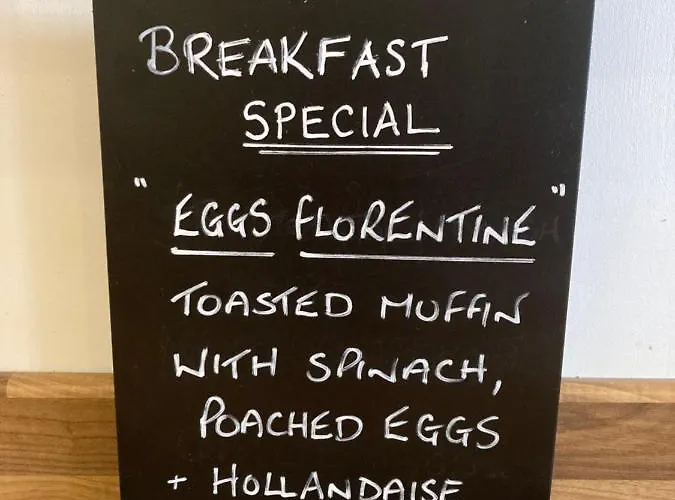 BREAKFAST
SPECIAL
"EGGS FLORENTINE"
TOASTED MUFFIN
WITH SPINACH,
POACHED EGGS
+ HOLLANDAISE